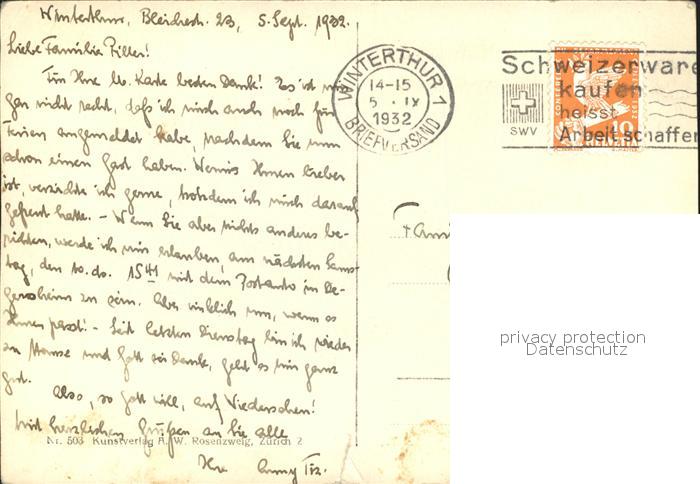 Winterthur, Bleichestr. 23, 5. Sept. 1932.
Liebe Familie Piller!
Für Ihre lb. Karte besten Dank! Es ist mir
gar nicht recht, dass ich mich auch noch für
Ferien angemeldet habe, nachdem Sie nun
schon einen Gast haben. Wenn's Ihnen lieber
ist, verzichte ich gerne, trotzdem ich mich darauf
gefreut hatte. - Wenn Sie aber nichts anderes be-
richten, werde ich mir erlauben, am nächsten Sams-
tag, den 10. ds. 15 41 mit dem Postauto in De-
gersheim zu sein. Aber wirklich nur, wenn es
Ihnen passt! - Seit letzten Dienstag bin ich wieder
zu Hause und Gott sei Dank, geht es mir ganz
gut.
Also, so Gott will, auf Wiedersehen!
Mit herzlichen Grüßen an Sie alle
Nr. 503 Kunstverlag A. W. Rosenzweig, Zürich 2
Ihre Anny
WINTERTHUR 1
14-15
5. IX
1932
BRIEFVERSAND
Schweizerware
kaufen
heisst
Arbeit schaffen
SWV
10
HELVETIA
privacy protection
Datenschutz